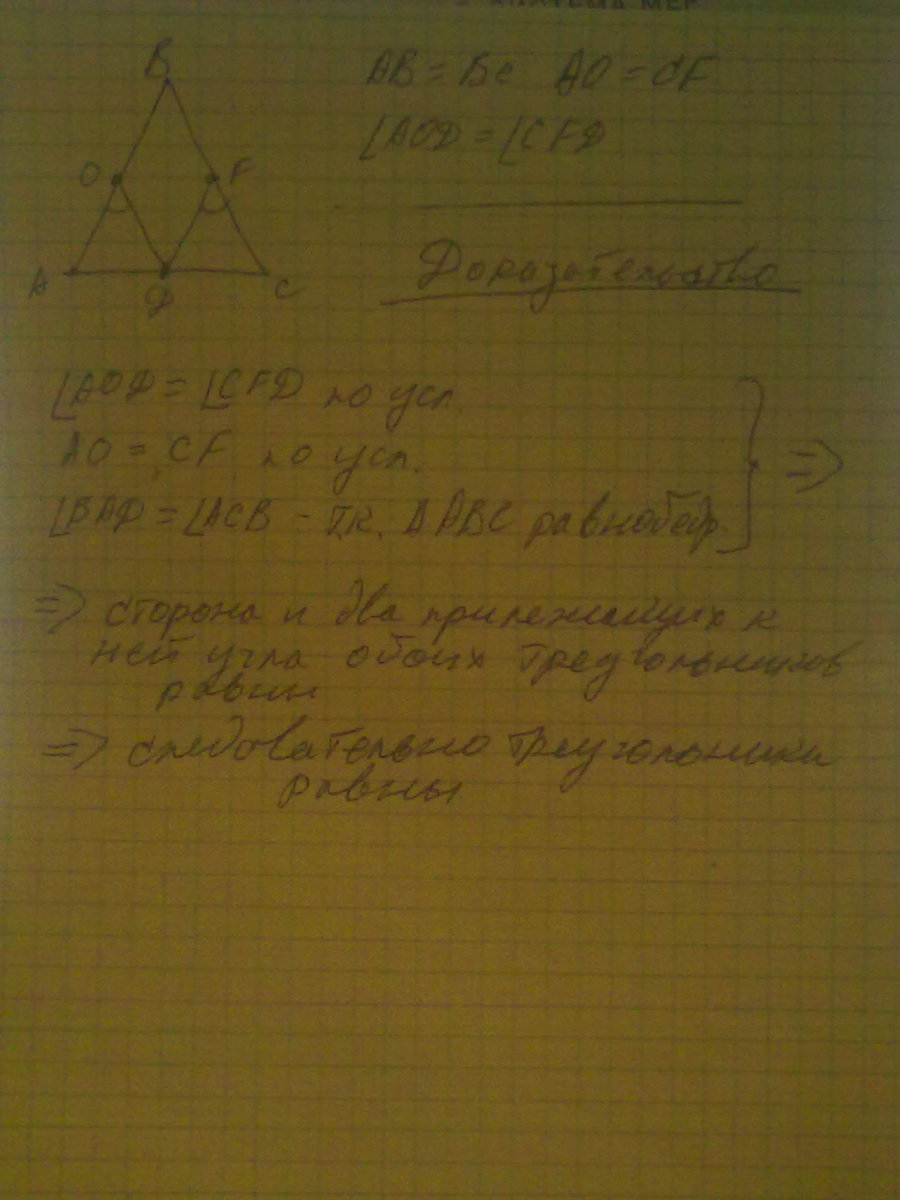 АПАТЬМА МЕР
B
AB = BC AO = CF
∠AOD = ∠CFD
O F
A D C
Доказательство
∠AOD = ∠CFD по усл.
AO = CF по усл.
∠BAD = ∠ACB - т.к. ΔABC равнобедр.
=>
=> сторона и два прилежащих к
ней угла обоих треугольников
равны
=> следовательно треугольники
равны